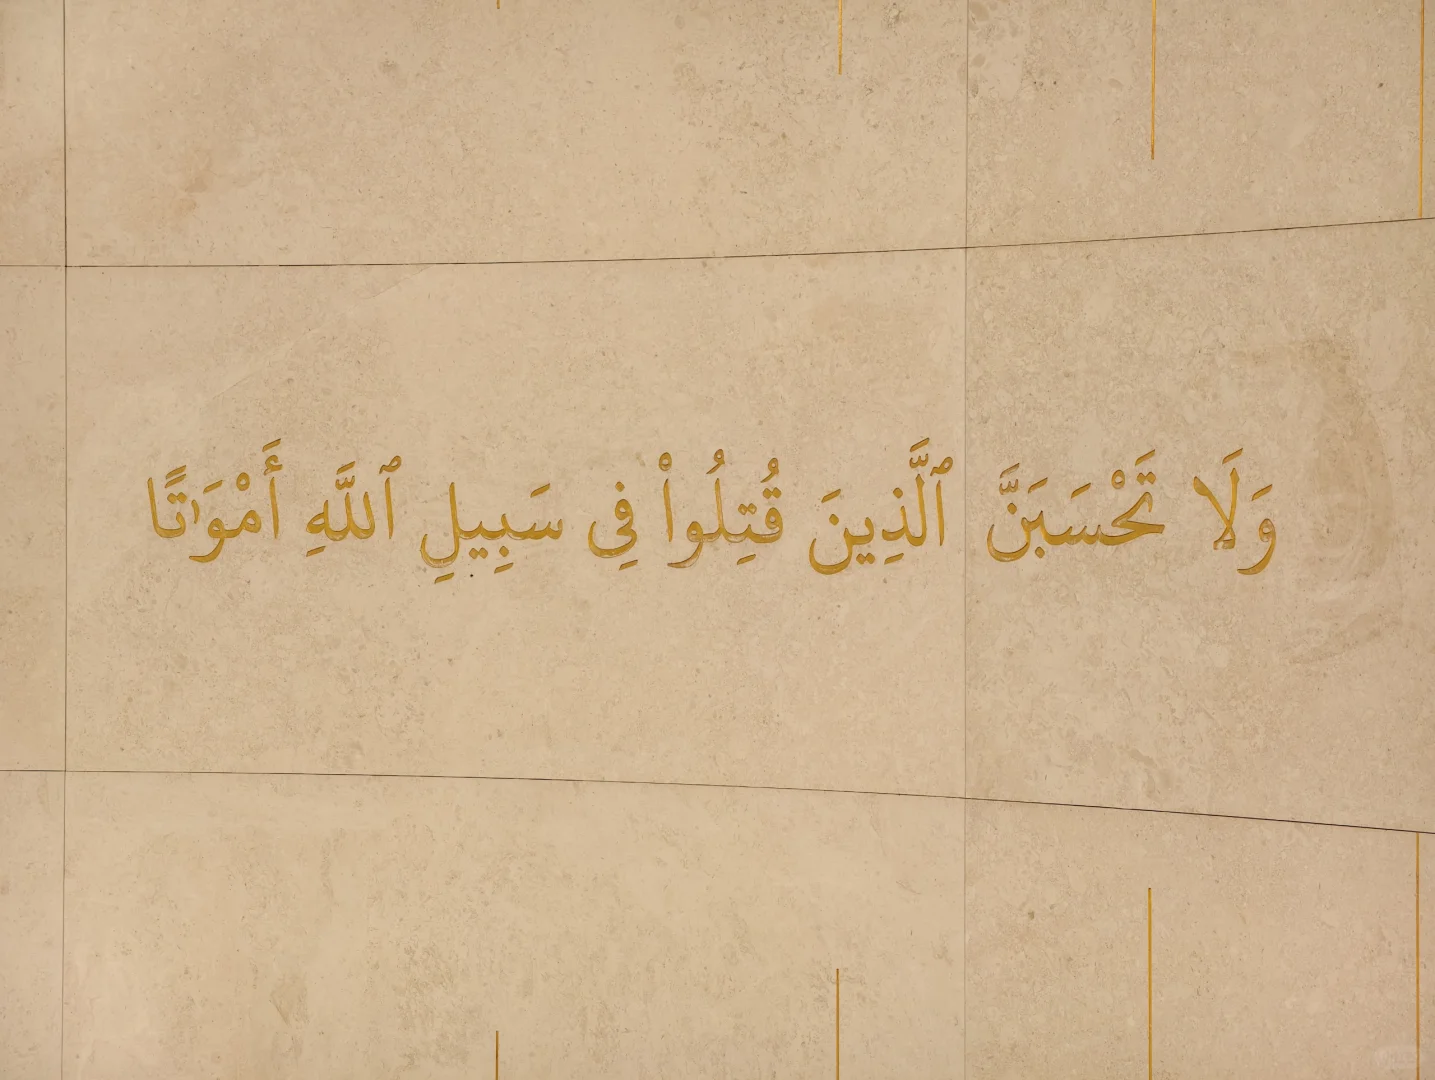 وَلَا تَحْسَبَنَّ ٱلَّذِينَ قُتِلُوا۟ فِى سَبِيلِ ٱللَّهِ أَمْوَٰتًا